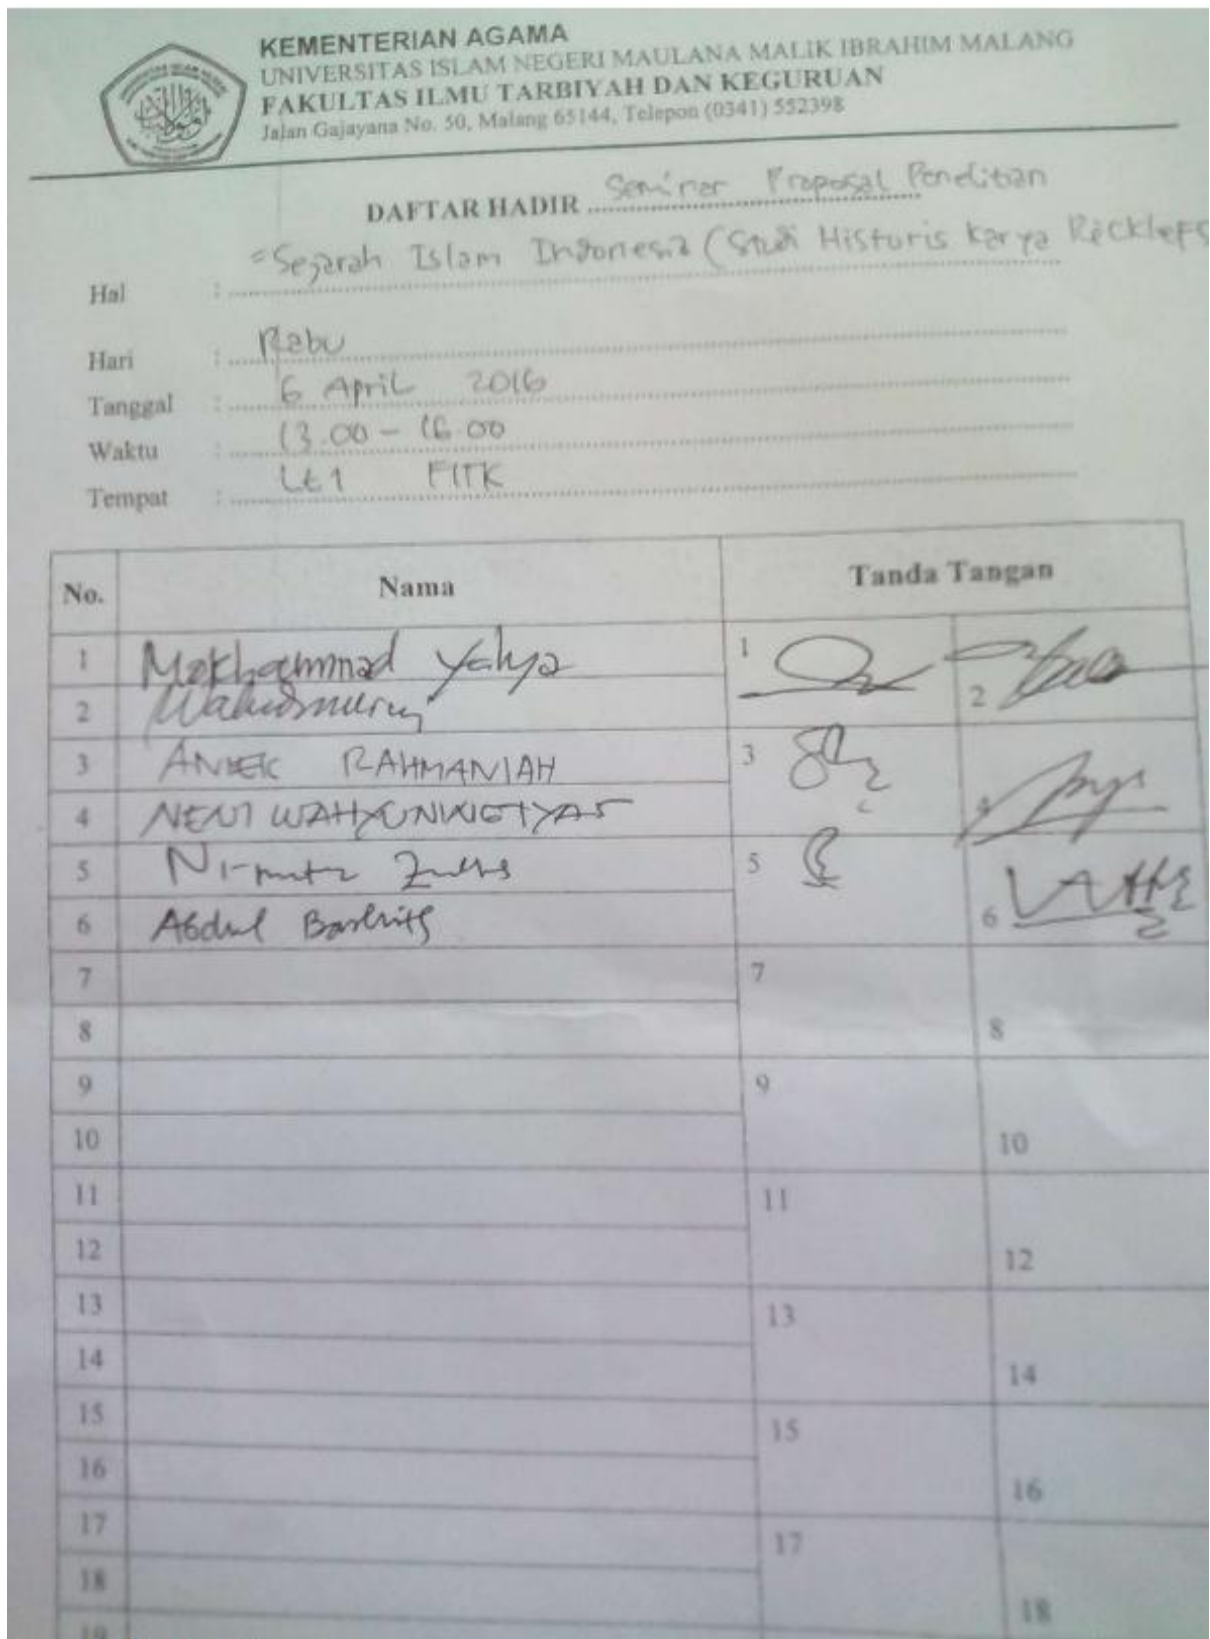 KEMENTERIAN AGAMA
UNIVERSITAS ISLAM NEGERI MAULANA MALIK IBRAHIM MALANG
FAKULTAS ILMU TARBIYAH DAN KEGURUAN
Jalan Gajayana No. 50, Malang 65144, Telepon (0341) 552398
DAFTAR HADIR Seminar Proposal Penelitian
Hal : Sejarah Islam Indonesia (Studi Historis Karya Recklefs
Hari : Rabu
Tanggal : 6 April 2016
Waktu : 13.00 - 16.00
Tempat : Lt 1 FITK
No. Nama Tanda Tangan
1 Mokhammad Yahya 1
2 Wahidmurni 2
3 ANIEK RAHMANIAH 3
4 NENI WAHYUNINGTYAS 4
5 5
6 Abdul Bashith 6
7 7
8 8
9 9
10 10
11 11
12 12
13 13
14 14
15 15
16 16
17 17
18 18
19